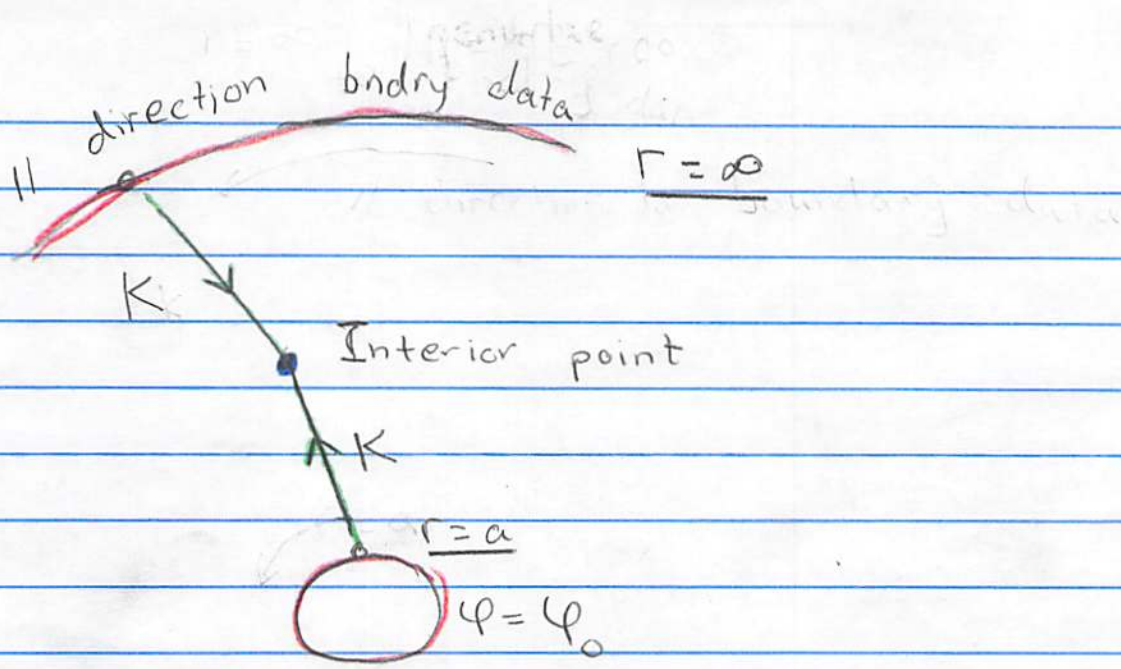 direction bndry data
||
r = ∞
K
Interior point
K
r = a
φ = φ₀